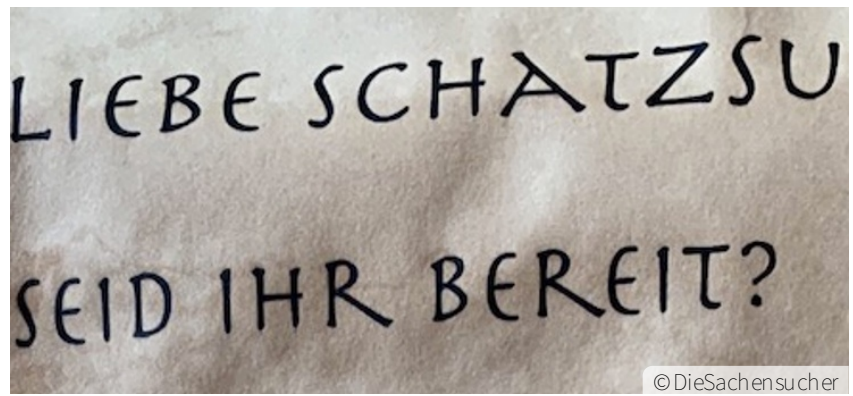 LIEBE SCHATZSU
SEID IHR BEREIT?
©DieSachensucher